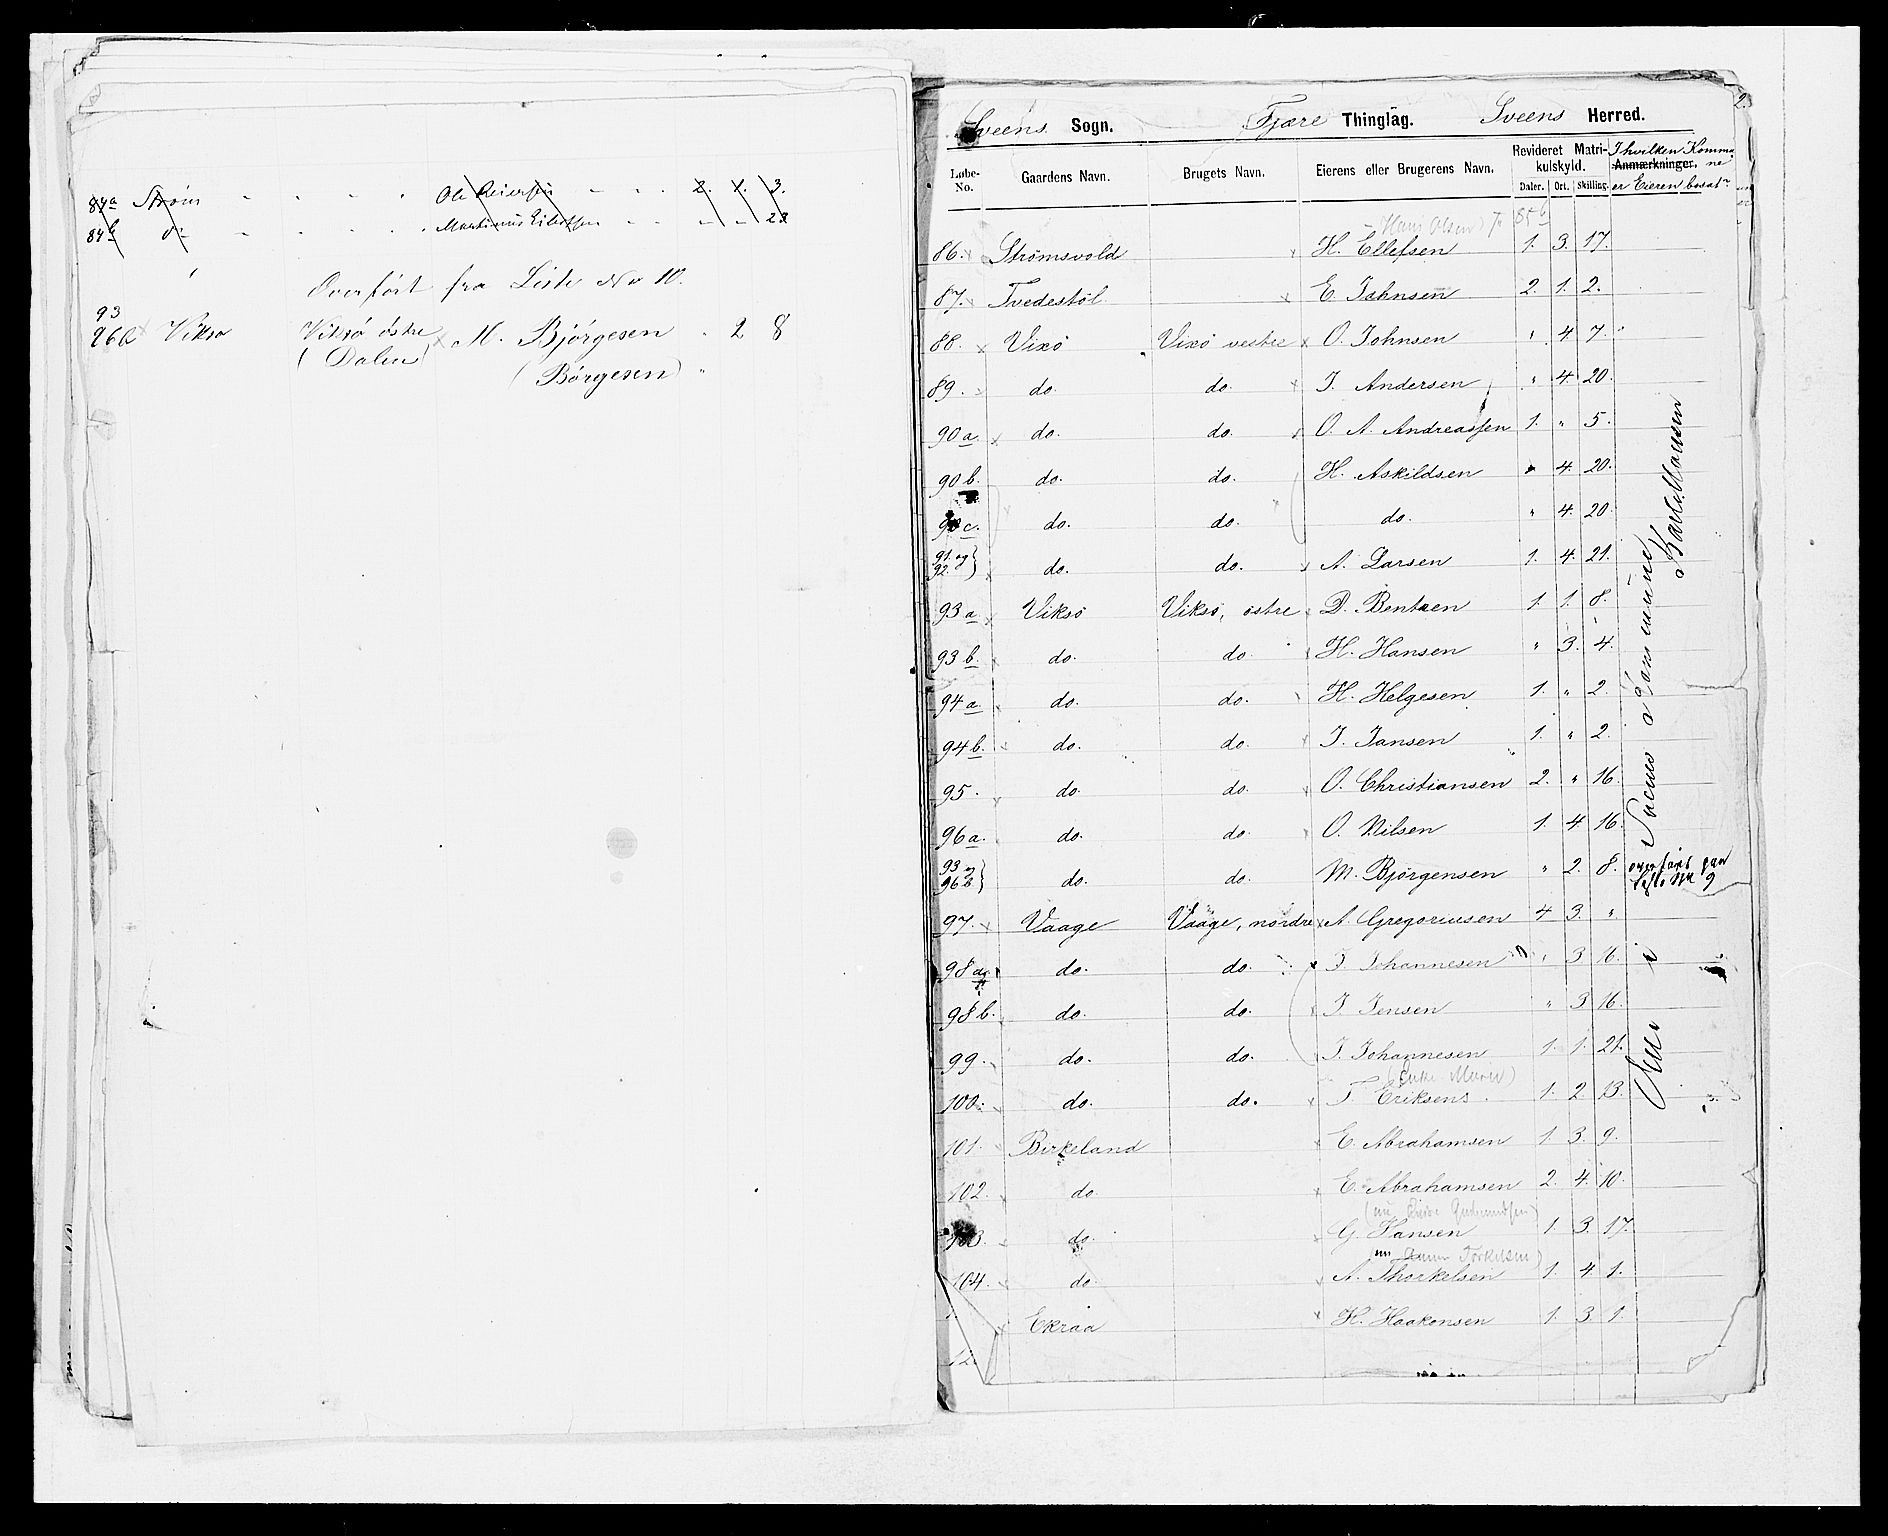 84a Strøm Ole Reiersen 2. 1. 3.
84b do Martinus Eilertsen 23
Overført fra Liste No 10.
93
96b Viksø Viksø østre M. Bjørgesen 2 8
(Dalen) (Børgesen)
Sveens Sogn. Fjære Thinglag. Sveens Herred.
Løbe-No. Gaardens Navn. Brugets Navn. Eierens eller Brugerens Navn. Revideret Matrikulskyld. Daler. Ort. Skilling. Anmærkninger. I hvilken Kommune er Eieren bosat
Hans Olsen 85b
86. Strømsvold H. Ellefsen 1. 3. 17.
87. Tvedestøl E. Johnsen 2. 1. 2.
88. Vixø Vixø vestre O. Johnsen " 4. 7.
89. do. do. J. Andersen " 4. 20.
90a. do. do. O. A. Andreassen 1. " 5.
90b. do. do. H. Askildsen " 4. 20.
90c. do. do. do. " 4. 20.
91. og 92. do. do. A. Larsen 1. 4. 21.
93a Viksø Viksø, østre D. Bentzen 1. 1. 8.
93b. do. do H. Hansen " 3. 4.
94a. do. do. H. Helgesen 1. " 2.
94b. do. do. J. Jansen 1. " 2.
95. do. do. O. Christiansen 2. " 16.
96a. do. do. O. Nilsen 1. 4 16.
93 og 96b do. do. M. Bjørgensen " 2. 8. overført paa Liste No 9
97. Vaage Vaage, nordre A. Gregoriusen 4 3. "
98a do. do. J. Johannesen " 3 16.
98b. do. do. J. Jensen " 3 16.
99. do. do. J. Johannesen 1. 1. 21.
(Enke Maren)
100. do. do. T. Eriksens 1. 2. 13.
101. Birkeland E. Abrahamsen 1. 3. 9.
102. do E. Abrahamsen 2. 4. 10.
(nu Gudmundsen)
103. do. G. Hansen 1. 3. 17.
(nu Gunner Torkilsen)
104. do. A. Thorkelsen 1. 4 1.
1. Ekraa H. Haakonsen 1. 3. 1.
12.